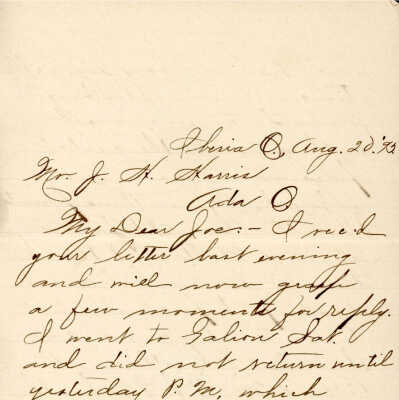 Iberia O., Aug. 20.'93
Mr. J. H. Harris
Ada O.
My Dear Joe:- I rec'd
your letter last evening
and will now grasp
a few moments for reply.
I went to Galion Sat.
and did not return until
yesterday P.M, which